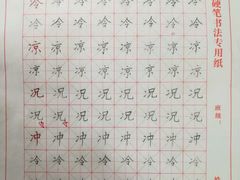 冷 冷 冷 冷 冷 冷 冷 冷
冷 冷 冷 冷 冷 冷 冷 冷
凉 凉 凉 凉 凉 凉 凉 凉
凉 凉 凉 凉 凉 凉 凉 凉
况 况 况 况 况 况 况 况
况 况 况 况 况 况 况 况
冲 冲 冲 冲 冲 冲 冲 冲
冷 冷 冷 冷 冷 冷 冷 冷
硬笔书法专用纸
班级: